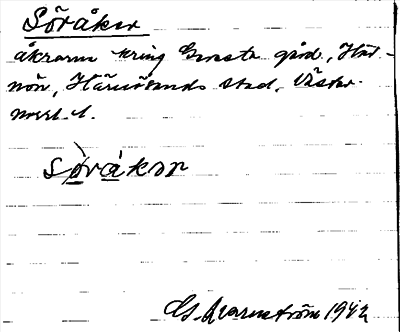 Söråker
åkrarna kring Gånsta gård, Här-
nön, Härnösands stad, Väster-
norrl. l.
söråkər
G. Warnström 1942